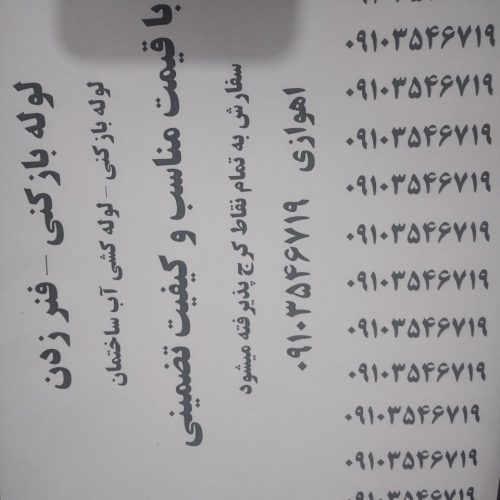 لوله بازکنی - فنر زدن
لوله بازکنی - لوله کشی آب ساختمان
با قیمت مناسب و کیفیت تضمینی
سفارش به تمام نقاط کرج پذیرفته میشود
اهوازی ۰۹۱۰۳۵۴۶۷۱۹
۰۹۱۰۳۵۴۶۷۱۹
۰۹۱۰۳۵۴۶۷۱۹
۰۹۱۰۳۵۴۶۷۱۹
۰۹۱۰۳۵۴۶۷۱۹
۰۹۱۰۳۵۴۶۷۱۹
۰۹۱۰۳۵۴۶۷۱۹
۰۹۱۰۳۵۴۶۷۱۹
۰۹۱۰۳۵۴۶۷۱۹
۰۹۱۰۳۵۴۶۷۱۹
۰۹۱۰۳۵۴۶۷۱۹